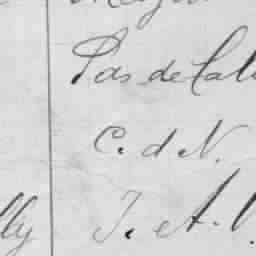 Pas de Cal
C. d N.
lly J. et V.